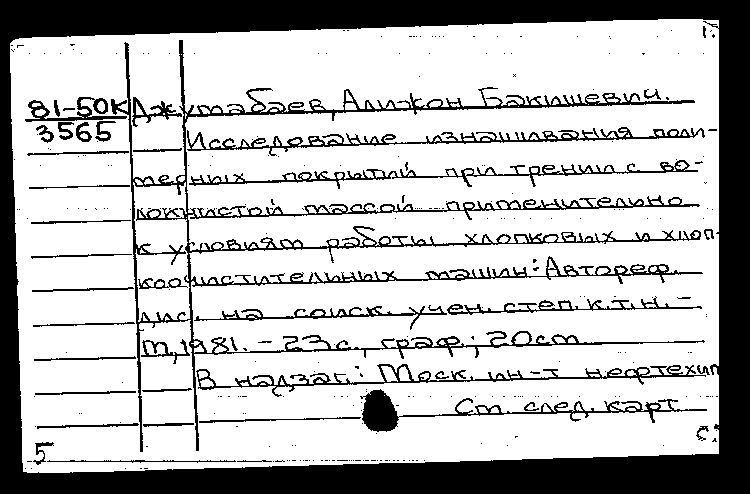 1.
81-50К Джумабаев, Алижон Бакишевич.
3565
Исследование изнашивания поли-
мерных покрытий при трении с во-
локнистой массой применительно
к условиям работы хлопковых и хлоп-
коочистительных машин: Автореф.
дис. на соиск. учен. степ. к.т.н. -
М, 1981. - 23 с., граф.; 20 cm
В надзаг.: Моск. ин-т нефтехим
См. след. карт
с:
5